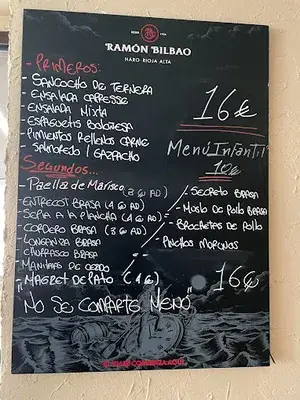 DESDE 1924
RAMÓN BILBAO
HARO · RIOJA ALTA
- PRIMEROS:
- SANCOCHO DE TERNERA
- ENSALADA CAPRESSE
- ENSALADA MIXTA
- ESPAGUETIS BOLOGESA
- PIMIENTOS RELLENOS CARNE
- SALMOREJO / GAZPACHO
16€
Menú Infantil
10€
SEGUNDOS...
- PAELLA DE MARISCO (3€ AD.)
- ENTRECOT BRASA (4€ AD)
- SEPIA A LA PLANCHA (4€ AD)
- CORDERO BRASA (3€ AD)
- LONGANIZA BRASA
- CHURRASCO BRASA
- MANITAS DE CERDO
- MAGRET DE PATO (4€)
- SECRETO BRASA
- MUSLO DE POLLO BRASA
- BROCHETAS DE POLLO
- PINCHOS MORUNOS
16€
"NO SE COMPARTE MENÚ"
EL VIAJE COMIENZA AQUÍ